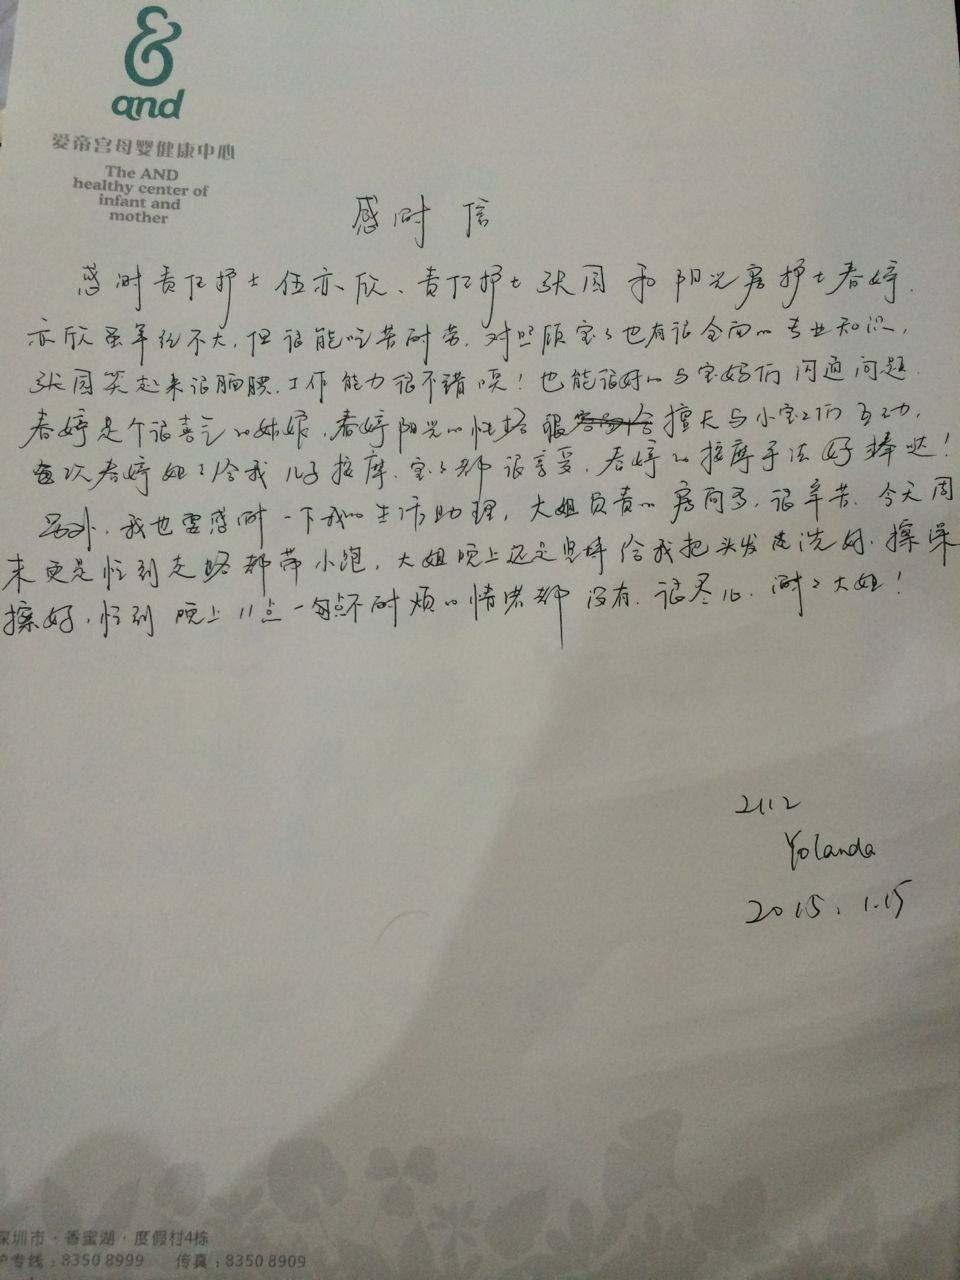 &
and
爱帝宫母婴健康中心
The AND
healthy center of
infant and
mother
感谢 信
感谢责任护士伍亦欣、责任护士张园和阳光房护士春婷.
亦欣虽年纪不大,但很能吃苦耐劳,对照顾宝宝也有很全面的专业知识,
张园笑起来很腼腆,工作能力很不错哦!也能很好的与宝妈们沟通问题.
春婷是个很喜气的姑娘,春婷阳光的性格很擅长与小宝宝们互动,
每次春婷姐姐给我儿子按摩,宝宝都很享受,春婷的按摩手法好棒哒!
另外,我也要感谢一下我的生活助理,大姐负责的房间多,很辛苦.今天周
末更是忙到走路都带小跑,大姐晚上还是坚持给我把头发洗好,擦澡
擦好,忙到晚上11点一句点不耐烦的情绪都没有.很尽心.谢谢大姐!
2112
Yolanda
2015.1.15
深圳市·香蜜湖·度假村4栋
专线:8350 8999 传真:8350 8909